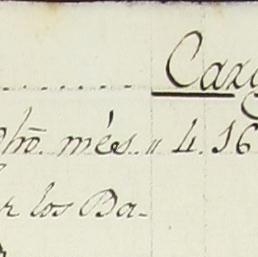 Carg
dho. més. „ 4. 16
r los Ba-